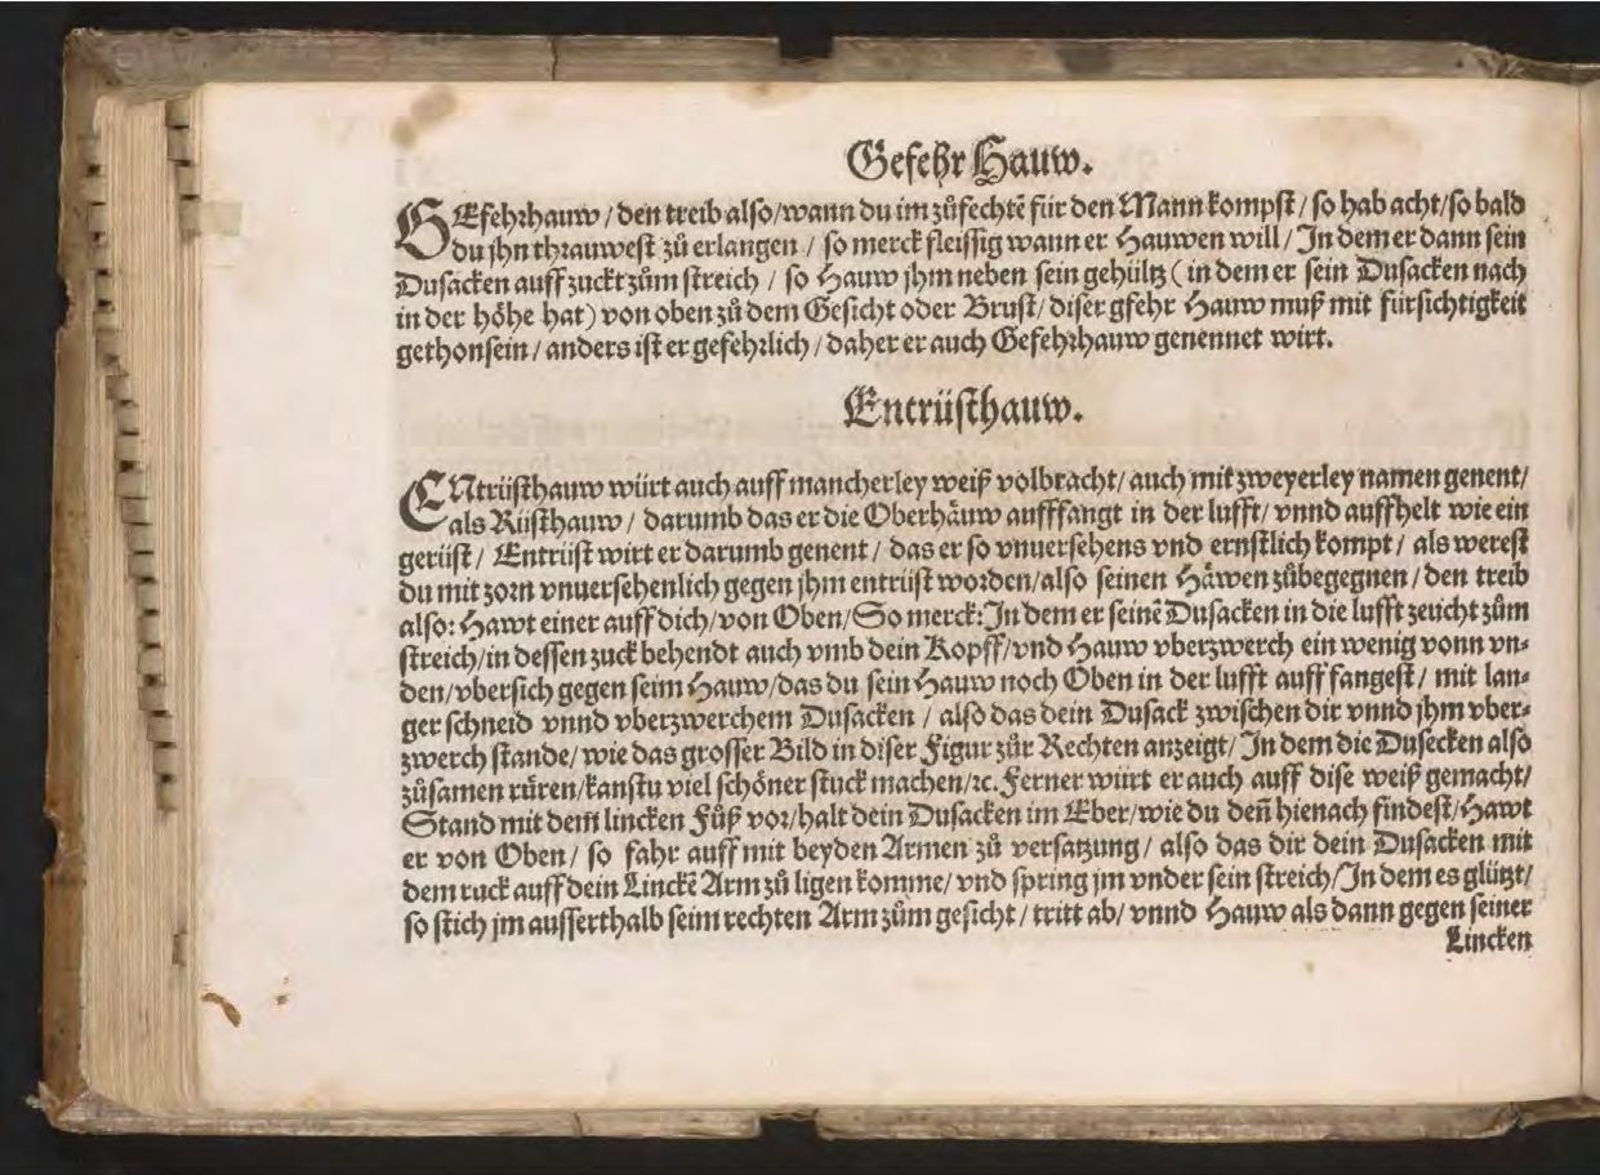 Gefehr Hauw.
GEfehrhauw / den treib also/wann du im zůfechtẽ für den Mann kompst / so hab acht/so bald
du jhn thrauwest zů erlangen / so merck fleissig wann er Hauwen will / In dem er dann sein
Dusacken auff zuckt zům streich / so Hauw jhm neben sein gehültz ( in dem er sein Dusacken nach
in der höhe hat) von oben zů dem Gesicht oder Brust/ diser gfehr Hauw muß mit fürsichtigkeit
gethon sein / anders ist er gefehrlich / daher er auch Gefehrhauw genennet wirt.
Entrüsthauw.
ENtrüsthauw würt auch auff mancherley weiß volbracht/ auch mit zweyerley namen genent/
als Rüsthauw / darumb das er die Oberhäuw aufffangt in der lufft/ vnnd auffhelt wie ein
gerüst / Entrüst wirt er darumb genent / das er so vnuersehens vnd ernstlich kompt / als werest
du mit zorn vnuersehenlich gegen jhm entrüst worden/also seinen Häwen zůbegegnen / den treib
also: Hawt einer auff dich/von Oben/So merck:In dem er seinẽ Dusacken in die lufft zeucht zům
streich/in dessen zuck behendt auch vmb dein Kopff/vnd Hauw vberzwerch ein wenig vonn vn-
den/vbersich gegen seim Hauw/das du sein Hauw noch Oben in der lufft auff fangest / mit lan-
ger schneid vnnd vberzwerchem Dusacken / also das dein Dusack zwischen dir vnnd jhm vber-
zwerch stande/ wie das grosser Bild in diser Figur zůr Rechten anzeigt/ In dem die Dusecken also
zůsamen rüren/kanstu viel schöner stuck machen/ꝛc. Ferner würt er auch auff dise weiß gemacht/
Stand mit dem̃ lincken Fůß vor/halt dein Dusacken im Eber/wie du deñ hienach findest/Hawt
er von Oben / so fahr auff mit beyden Armen zů versatzung / also das dir dein Dusacken mit
dem ruck auff dein Linckẽ Arm zů ligen komme/ vnd spring jm vnder sein streich/In dem es glützt/
so stich jm ausserthalb seim rechten Arm zům gesicht / tritt ab/ vnnd Hauw als dann gegen seiner
Lincken